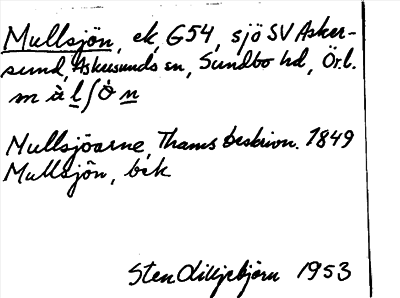 Mullsjön, ek, G54, sjö SV Asker-
sund, Askersunds sn, Sundbo hd, Ör.l.
m à l ʃ ò n
Mullsjöarne, Thams beskrivn. 1849
Mullsjön, bik
Sten Lilljebjörn 1953